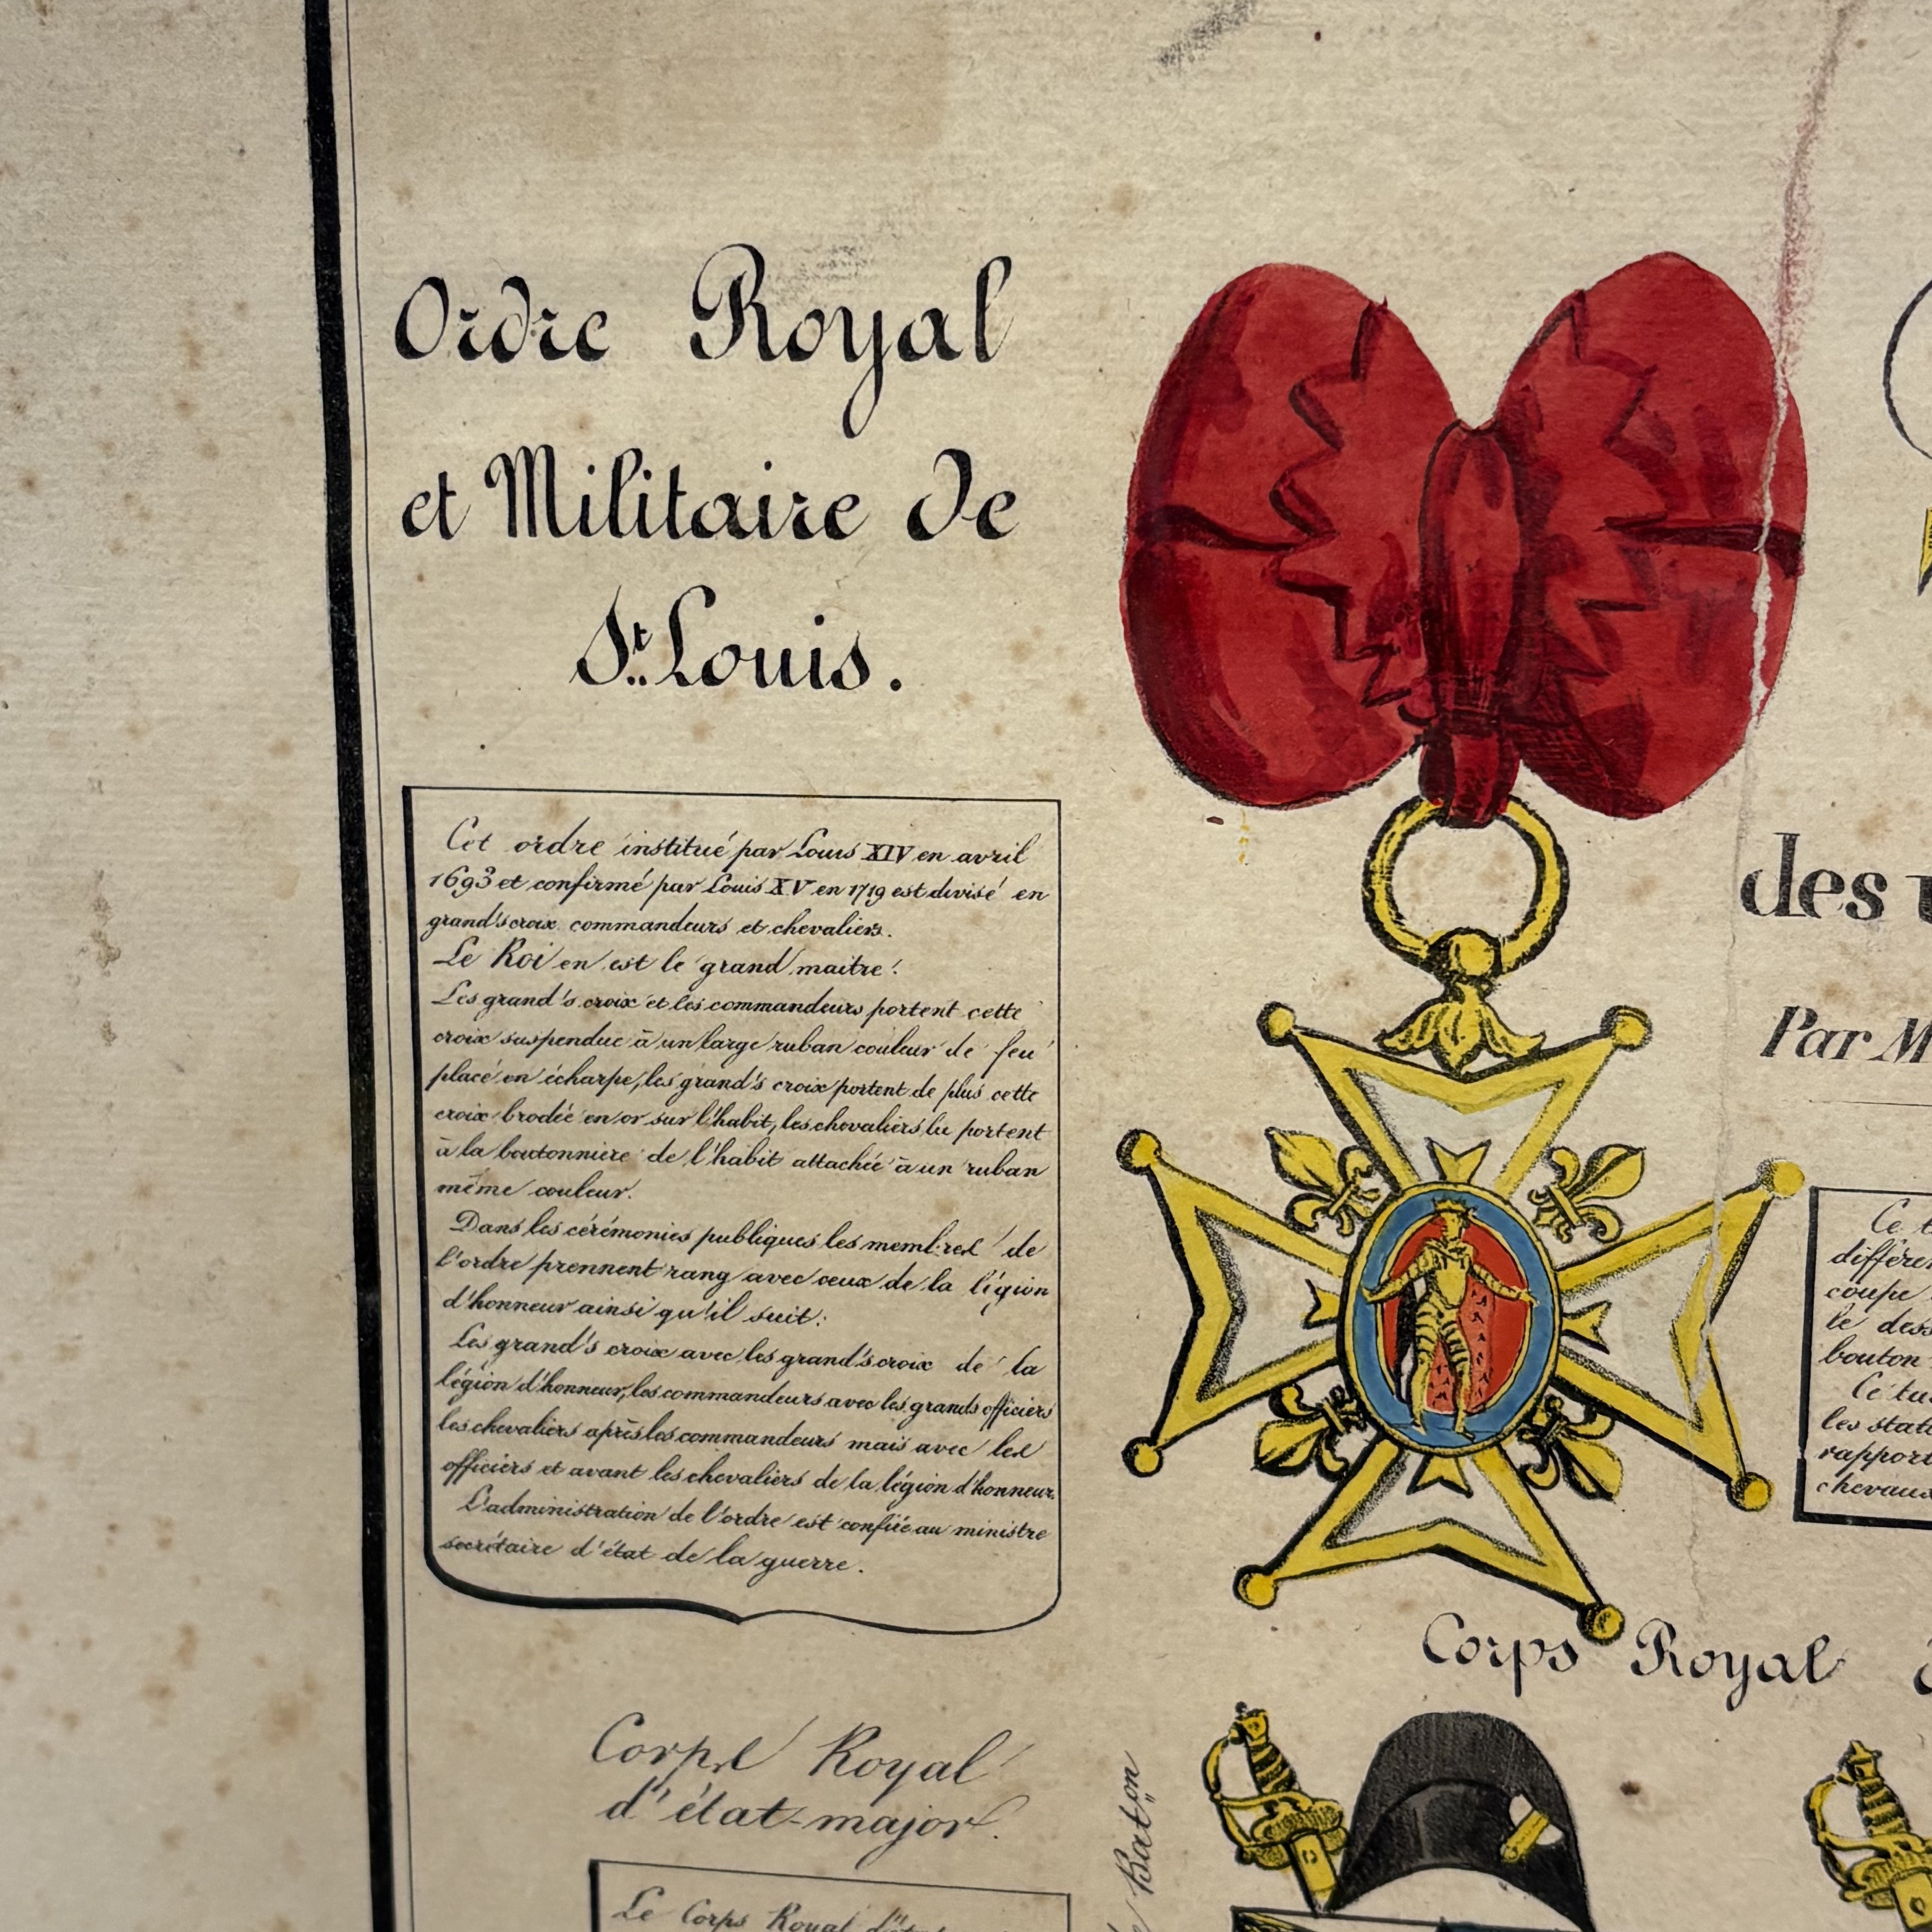 Ordre Royal
et Militaire de
St. Louis.
Cet ordre institué par Louis XIV en avril
1693 et confirmé par Louis XV en 1719 est divisé en
grand's croix commandeurs et chevaliers.
Le Roi en est le grand maitre.
Les grand's croix et les commandeurs portent cette
croix suspendue à un large ruban couleur de feu
placé en écharpe, les grand's croix portent de plus cette
croix brodée en or sur l'habit, les chevaliers la portent
à la boutonnière de l'habit attachée à un ruban
même couleur.
Dans les cérémonies publiques les membres de
l'ordre prennent rang avec ceux de la légion
d'honneur ainsi qu'il suit:
Les grand's croix avec les grand's croix de la
légion d'honneur, les commandeurs avec les grands officiers
les chevaliers après les commandeurs mais avec les
officiers et avant les chevaliers de la légion d'honneur.
L'administration de l'ordre est confiée au ministre
secrétaire d'état de la guerre.
Corps Royal
d'état-major.
Le Corps Royal
Baton
des
Par M
Ce
différen
coupe
le dess
bouton
Ce
les stat
rapport
chevaux
Corps Royal